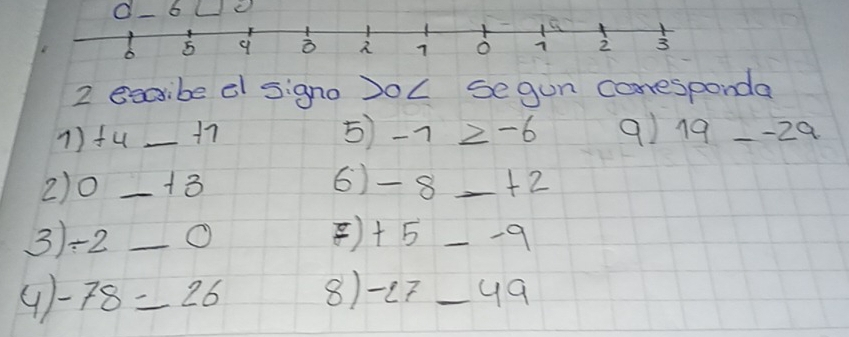 6 5 4 3 2 1 0 1 2 3
2 escribe el signo >o< segun corresponda
1) +4 _ +1 5) -1 > -6 9) 19 _ -29
2) 0 _ +3 6) -8 _ +2
3) -2 _ 0 7) +5 _ -9
4) -78 _ 26 8) -27 _ 49